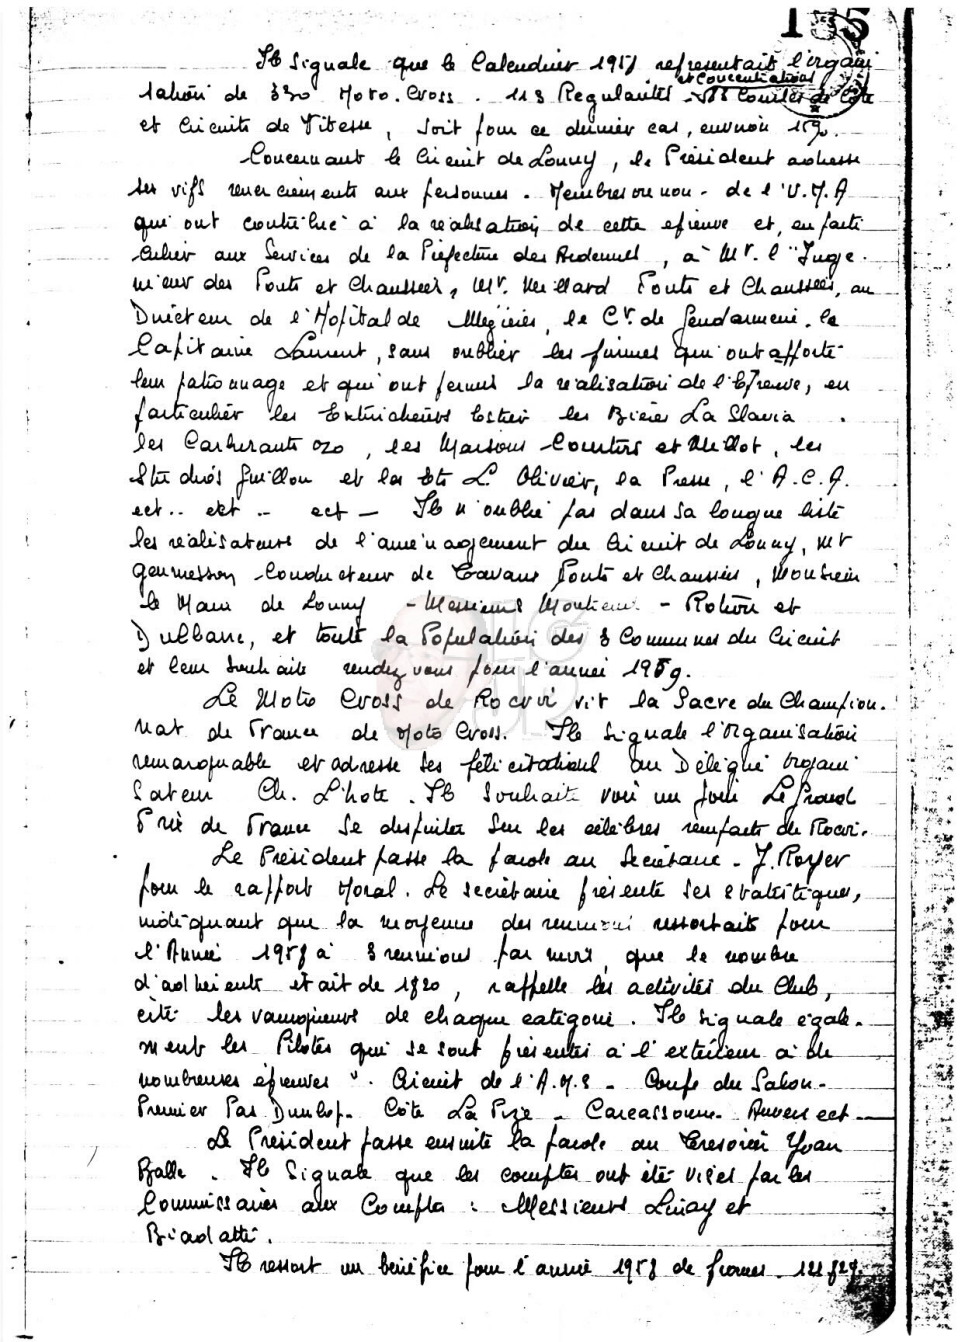 155
Il signale que le Calendrier 1958 representait l'organi
et Concentrations
sation de 330 Moto-Cross. 113 Regularités Courses de Côte
et Circuits de Vitesse, soit pour ce dernier cas, environ 15%.
Concernant le Circuit de Lonny, le Président adresse
ses vifs remerciements aux personnes. Membres ou non - de l'U.M.A
qui ont contribué à la réalisation de cette epreuve et, en parti
culier aux Services de la Préfecture des Ardennes, à Mr. l'Inge-
nieur des Ponts et Chaussées, Mr. Meillard Ponts et Chaussées, au
Directeur de l'Hopital de Mézières, le Ct. de Gendarmerie. le
Capitaine Laurent, sans oublier les firmes qui ont apporté
leur patronnage et qui ont permis la réalisation de l'Epreuve, en
particulier les les Bières La Slavia
les Carburants ozo, les Maisons Courtois et Millot, les
Studios Guillon et les Ets L. Olivier, la Presse, l'A.C.A.
ect.. ect - ect - Il n'oublie pas dans sa longue liste
les réalisateurs de l'aménagement du Circuit de Lonny, Mr
Conducteur de Travaux Ponts et Chaussées, Monsieur
le Maire de Lonny - Messieurs - et
et toute la Population des 3 Communes du Circuit
et leur souhaite rendez vous pour l'année 1959.
Le Moto Cross de Rocroi vit le Sacre du Champion-
nat de France de Moto Cross. Il signale l'Organisation
remarquable et adresse ses félicitations au Délégué organi
sateur Ch. Lhote. Il souhaite voir un jour Le Grand
Prix de France se disputer sur les célèbres remparts de Rocroi.
Le Président passe la parole au Secrétaire - J. Royer
pour le rapport Moral. Le secrétaire présente ses statistiques,
indiquant que la moyenne des reunions ressortait pour
l'Année 1958 à 3 reunions par mois, que le nombre
d'adherents était de 1820, rappelle les activités du Club,
cite les vainqueurs de chaque catégorie. Il signale égale-
ment les Pilotes qui se sont présentés à l'extérieur à de
nombreuses épreuves ". Circuit de l'A.M.S - Coupe du Salon -
Premier Pas Dunlop - Côte La - Carcassonne - Anvers ect -
Le Président passe ensuite la parole au Tresorier Yvan
Balle. Il signale que les comptes ont été visés par les
Commissaires aux Comptes : Messieurs Linay et
Il ressort un bénéfice pour l'année 1958 de francs. 121 829.